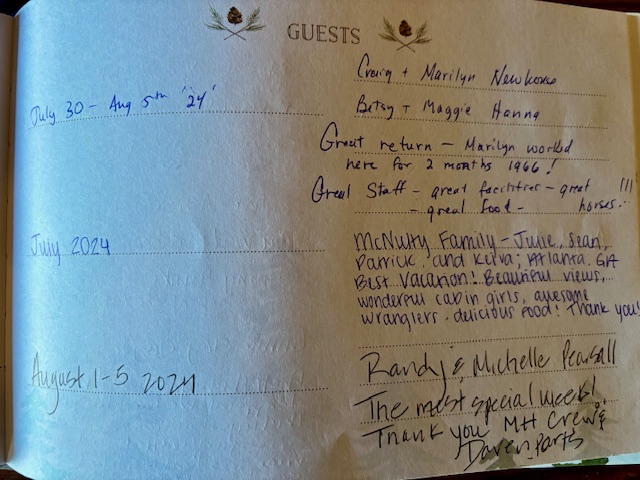 GUESTS
Craig + Marilyn Newhouse
July 30 - Aug 5th '24'
Betsy + Maggie Hanna
Great return - Marilyn worked
here for 2 months 1966!
Great Staff - great facilities - great
- great food - horses!!!
July 2024
McNulty Family - Julie, Sean,
Patrick and Keiva; Atlanta, GA
Best Vacation! Beautiful views,
wonderful cabin girls, awesome
wranglers. delicious food! Thank you!
August 1-5 2024
Randy & Michelle Pearsall
The most special week!
Thank you MH Crew &
Davenports